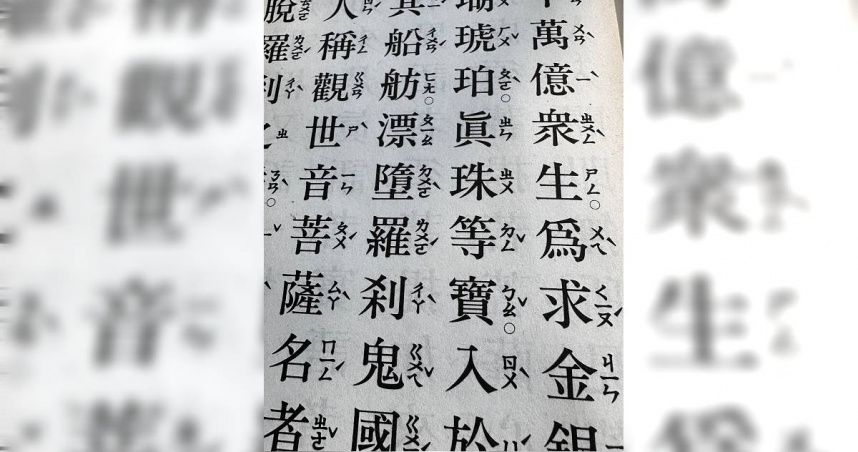 萬億衆生。爲求金銀
瑚琥珀。眞珠等寶。入於
其船舫。漂墮羅刹鬼國
人稱觀世音菩薩名者
脫羅刹